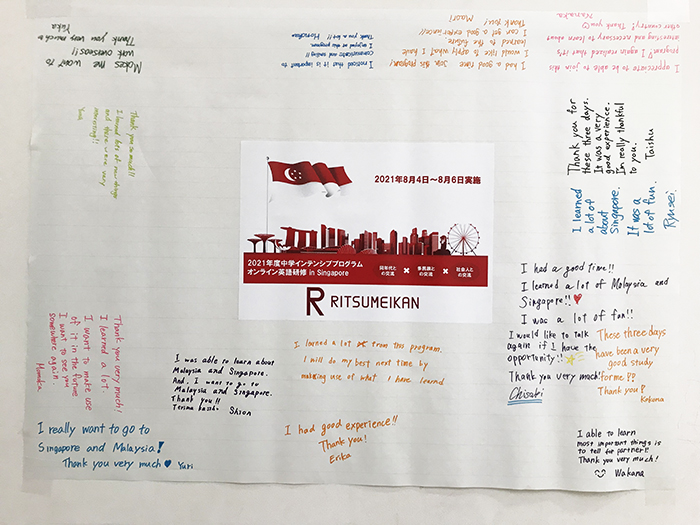 Makes me want to
work overseas!!
Thank you very much
Yuka
I noticed that it is important to
communicate and smiling!!
I enjoyed at this program.
Thank you a lot!!
Honoka
I had a good time join this program!
I would like to apply what I have
learned to the future.
I can get a good experience!!
Thank you!
Maori
I appreciate to be able to join this
program! I again realized that it's
interesting and necessary to learn about
other country! Thank you
Nanaka
Thank you so much!!
I found lots of new things
and there were very
interesting!!
Yui
Thank you for
these three days.
It was a very
good experience.
I'm really thankful
to you.
Taishu
I learned
a lot of
about
Singapore.
It was a
lot of fun.
Ryusei.
2021年8月4日〜8月6日実施
2021年度中学インテンシブプログラム
オンライン英語研修 in Singapore
同年代と
の交流
×
多民族と
の交流
×
社会人と
の交流
R RITSUMEIKAN
I had a good time!!
I learned a lot of Malaysia and
Singapore!! ♥
I was a lot of fun!!
I would like to talk
again if I have the
opportunity!!
Thank you very much!
Chisaki
These three days
have been a very
good study
for me!?
Thank you!
Kokuna
Thank you very much!
I learned a lot.
I want to make use
of it in the future
I want to see you
somewhere again.
Manaka
I was able to learn about
Malaysia and Singapore.
And. I want to go to
Malaysia and Singapore.
Thank you!!
Terima kasih
Shion
I larned a lot from this program.
I will do my best next time by
making use of what I have learned
I really want to go to
Singapore and Malaysia!
Thank you very much ♥ Yuri
I had good experience!!
Thank you!
Erika
I able to learn
most important things is
to tell for partner!!
Thank you very much!
Wakana